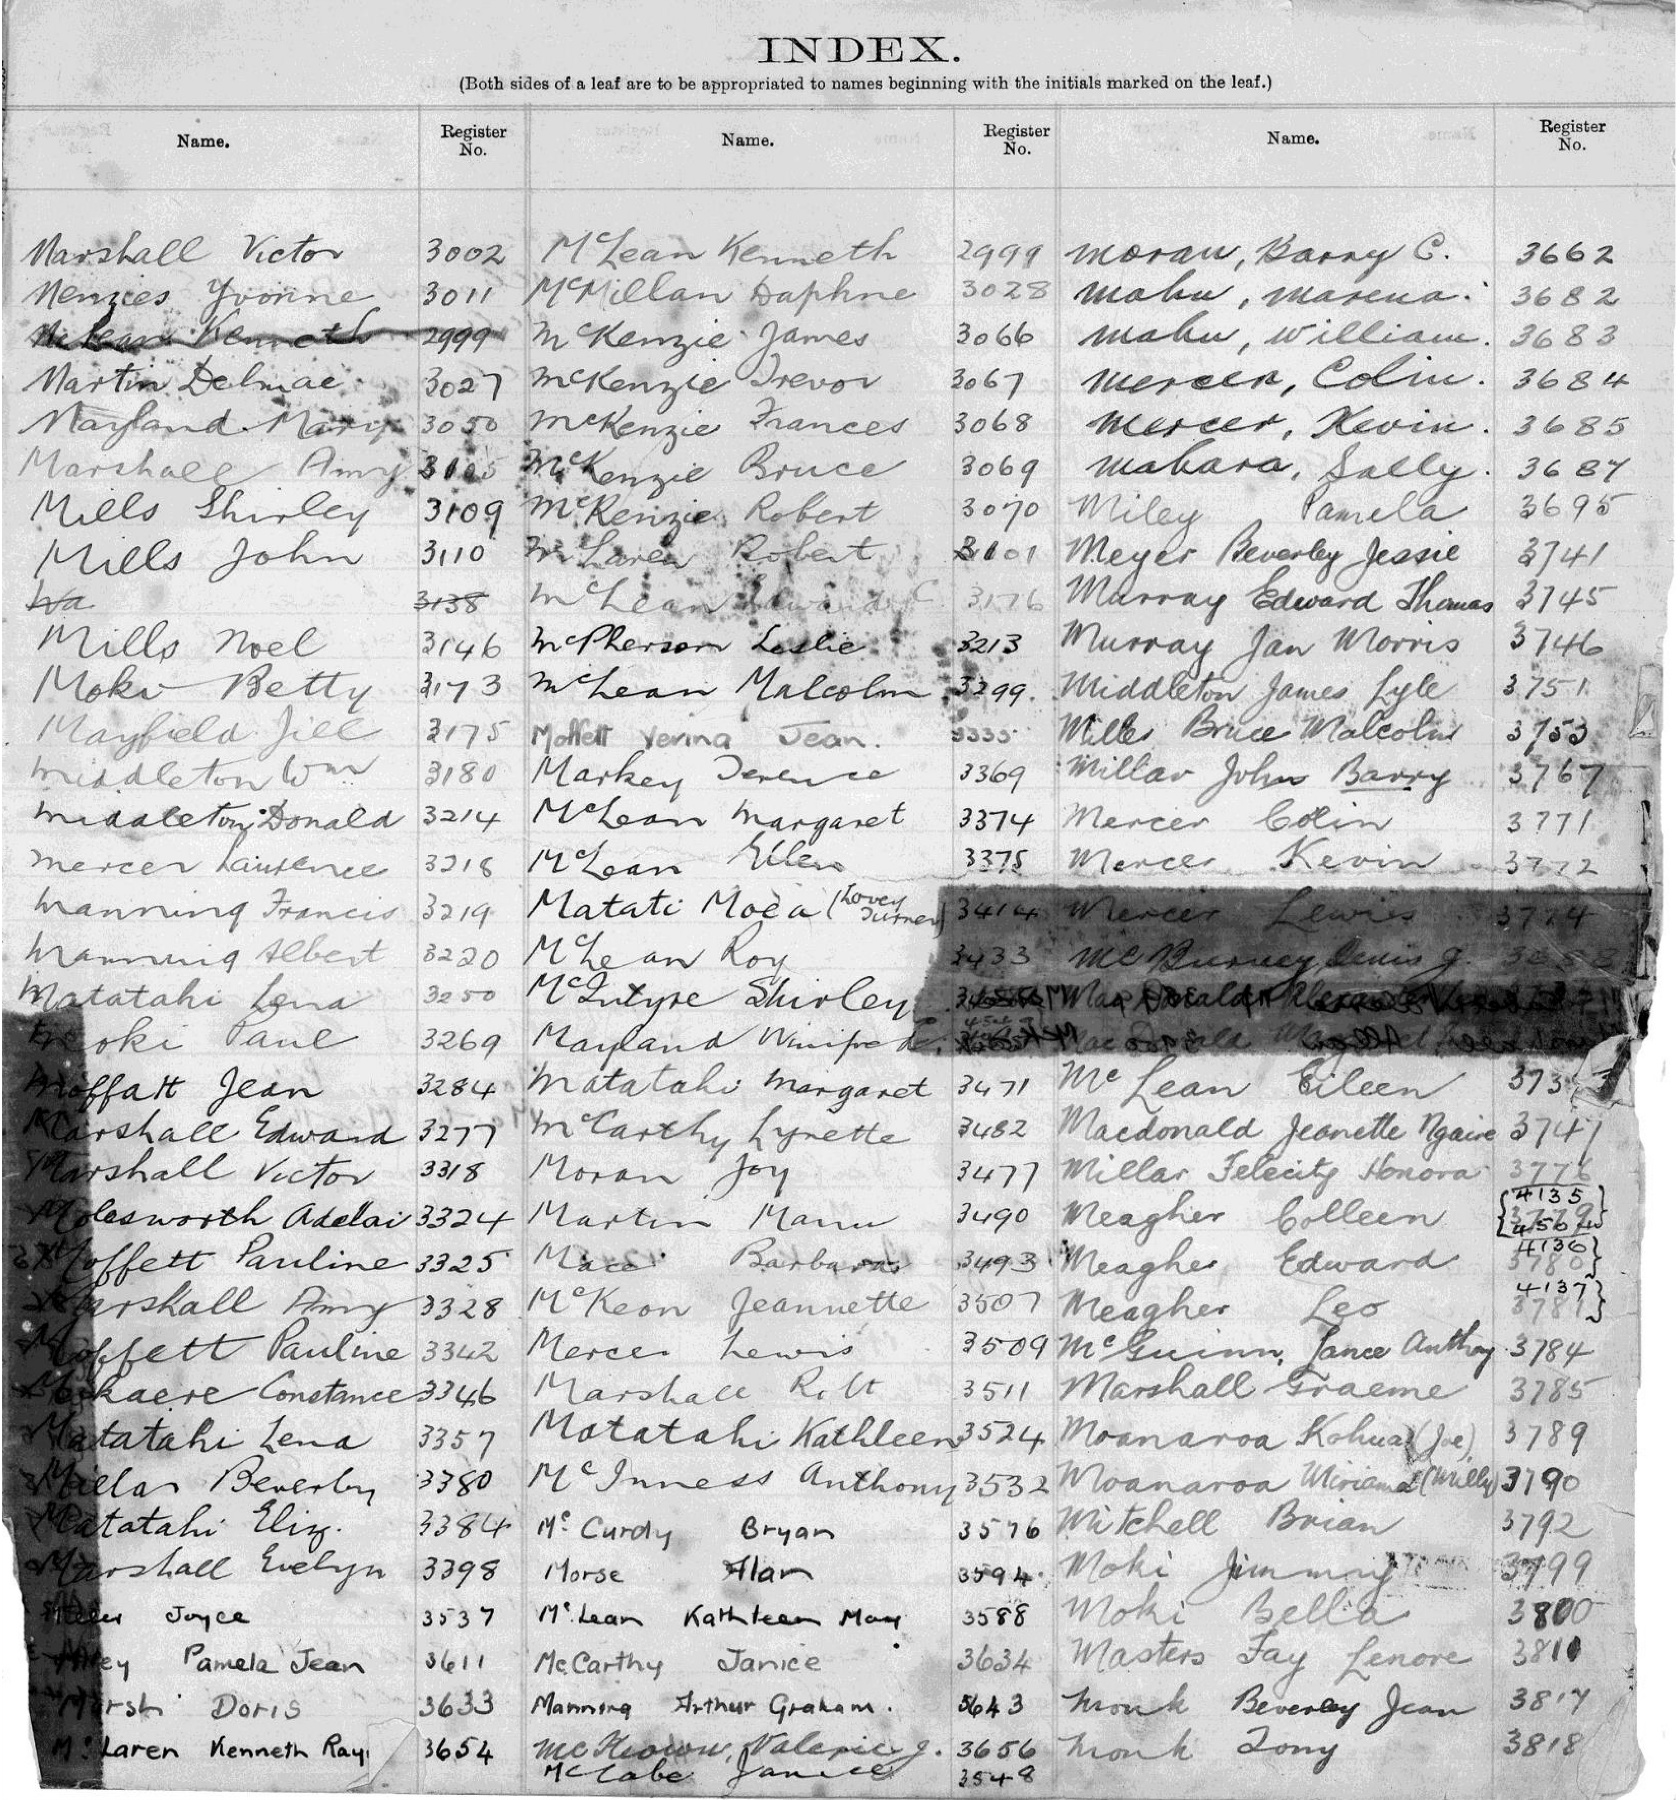 INDEX.
(Both sides of a leaf are to be appropriated to names beginning with the initials marked on the leaf.)
Name.
Register No.
Marshall Victor 3002
Menzies Yvonne 3011
McLean Kenneth 2999
Martin Delmae 3027
Mayland Mary 3050
Marshall Amy
Mills Shirley 3109
Mills John 3110
Wa 3138
Mills Noel 3146
Moki Betty 3173
Mayfield Jill 3175
Middleton Wm 3180
Middleton Donald 3214
Mercer Laurence 3218
Manning Francis 3219
Manning Albert 3220
Matatahi Lena 3250
Moki Paul 3269
Moffatt Jean 3284
Marshall Edward 3277
Marshall Victor 3318
Molesworth Adelai 3324
Moffett Pauline 3325
Marshall Amy 3328
Moffett Pauline 3342
Constance 3346
Matatahi Lena 3357
Millar Beverly 3380
Matatahi Eliz. 3384
Marshall Evelyn 3398
Joyce 3537
Miley Pamela Jean 3611
Marsh Doris 3633
Mc Laren Kenneth Ray 3654
Name.
Register No.
McLean Kenneth 2999
McMillan Daphne 3028
McKenzie James 3066
McKenzie Trevor 3067
McKenzie Frances 3068
McKenzie Bruce 3069
McKenzie Robert 3070
McLaren Robert 3101
McLean 3176
McPherson Leslie 3213
McLean Malcolm 3299
Moffett Verina Jean. 3335
Markey Terence 3369
McLean Margaret 3374
McLean Ellen 3375
Matati Moea (Lovey Turner) 3414
McLean Roy 3433
McIntyre Shirley
Mayland Winifrede
Matatahi Margaret 3471
McCarthy Lynette 3482
Moran Joy 3477
Martin Manu 3490
Barbara 3493
McKeon Jeannette 3507
Mercer Lewis 3509
Marshall 3511
Matatahi Kathleen 3524
McInness Anthony 3532
Mc Curdy Bryan 3576
Morse Alan 3594
McLean Kathleen May 3588
McCarthy Janice 3634
Manning Arthur Graham. 3643
McKeown, Valerie J. 3656
McCabe Janice 3548
Name.
Register No.
Moran, Barry C. 3662
Mahu, Marena. 3682
Mahu, William. 3683
Mercer, Colin. 3684
Mercer, Kevin. 3685
Mahara, Sally. 3687
Miley Pamela 3695
Meyer Beverley Jessie 3741
Murray Edward Thomas 3745
Murray Jan Morris 3746
Middleton James Lyle 3751
Mills Bruce Malcolm 3753
Millar John Barry 3767
Mercer Colin 3771
Mercer Kevin 3772
Mercer Lewis 3774
McBurney, Denis J.
Mac Donald
Mac Donald
Mc Lean Eileen
Macdonald Jeanette Ngaire 3747
Millar Felicity Honora 3776
Meagher Colleen 4135 3779
Meagher Edward 4136 3780
Meagher Leo 4137 3781
McGuinn, Lance Anthony 3784
Marshall Graeme 3785
Moanaroa Kohua (Joe) 3789
Moanaroa (Milly) 3790
Mitchell Brian 3792
Moki Jimmy 3799
Moki Bella 3800
Masters Fay Lenore 3811
Monk Beverley Jean 3817
Monk Tony 3818